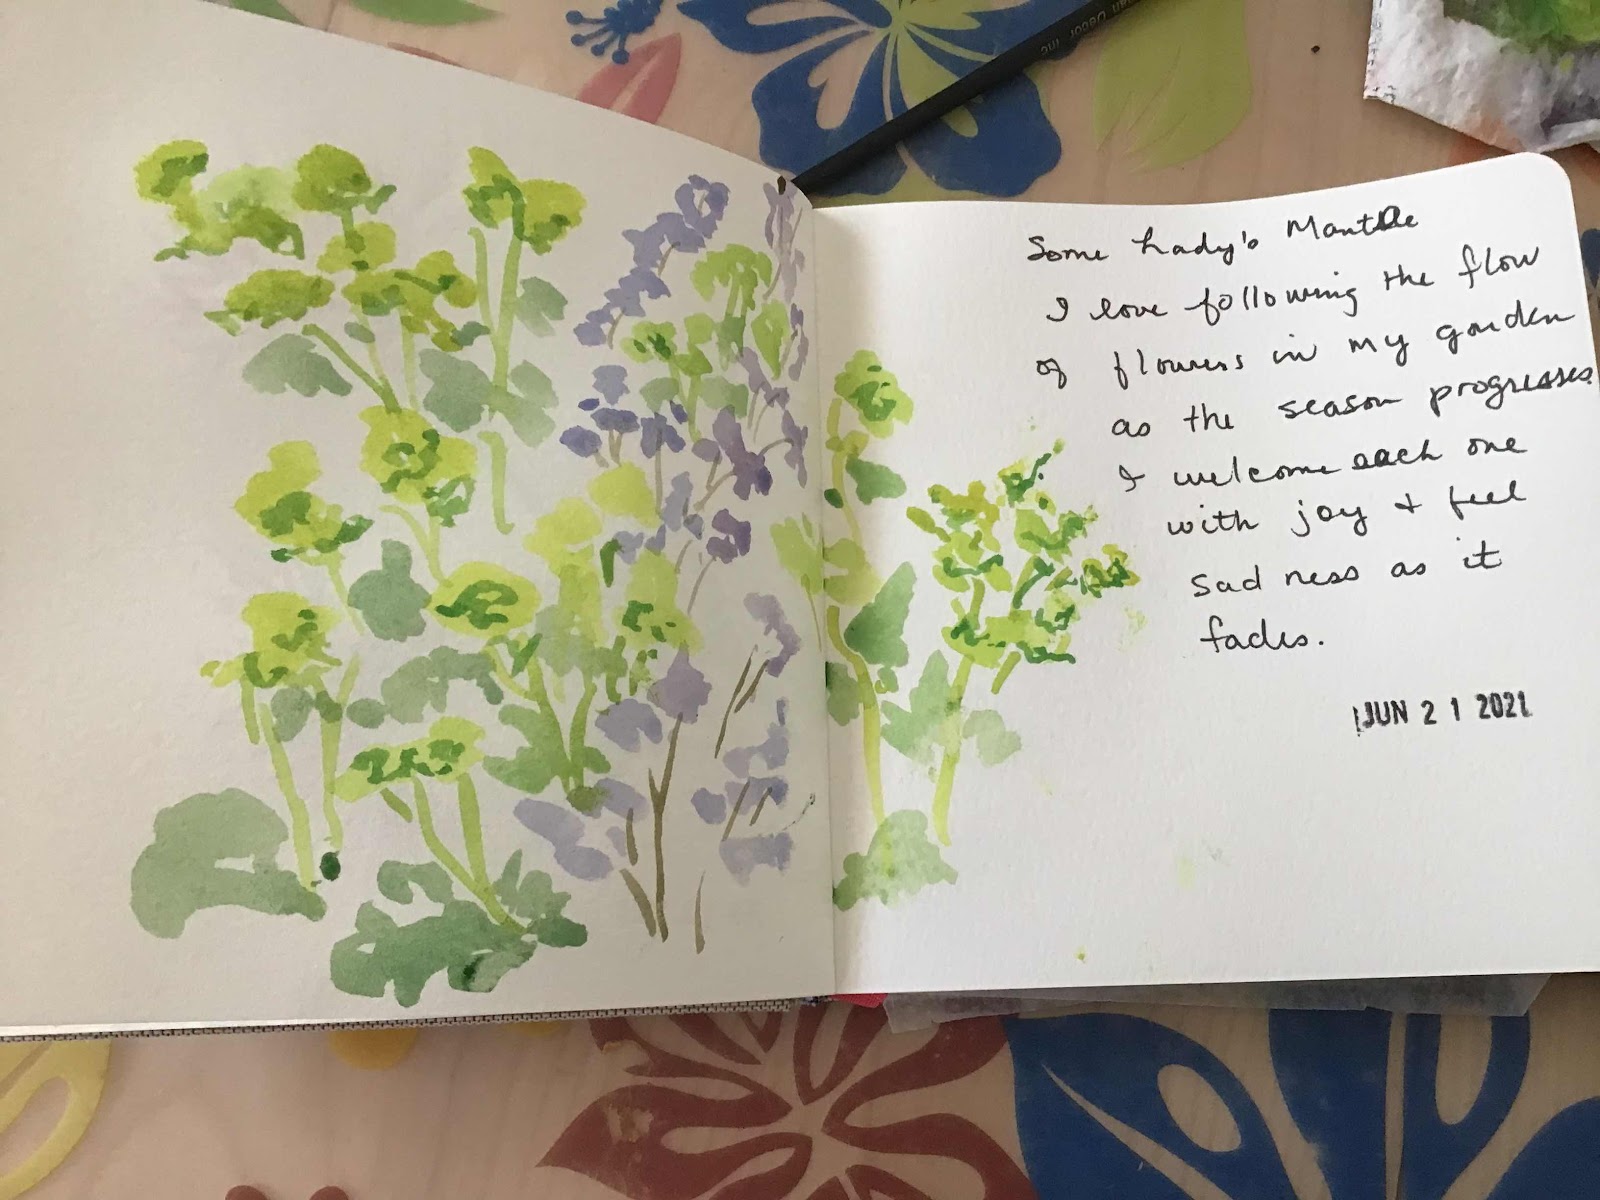 Some Lady's Mantle
I love following the flow
of flowers in my garden
as the season progresses.
I welcome each one
with joy + feel
sadness as it
fades.
JUN 21 2021